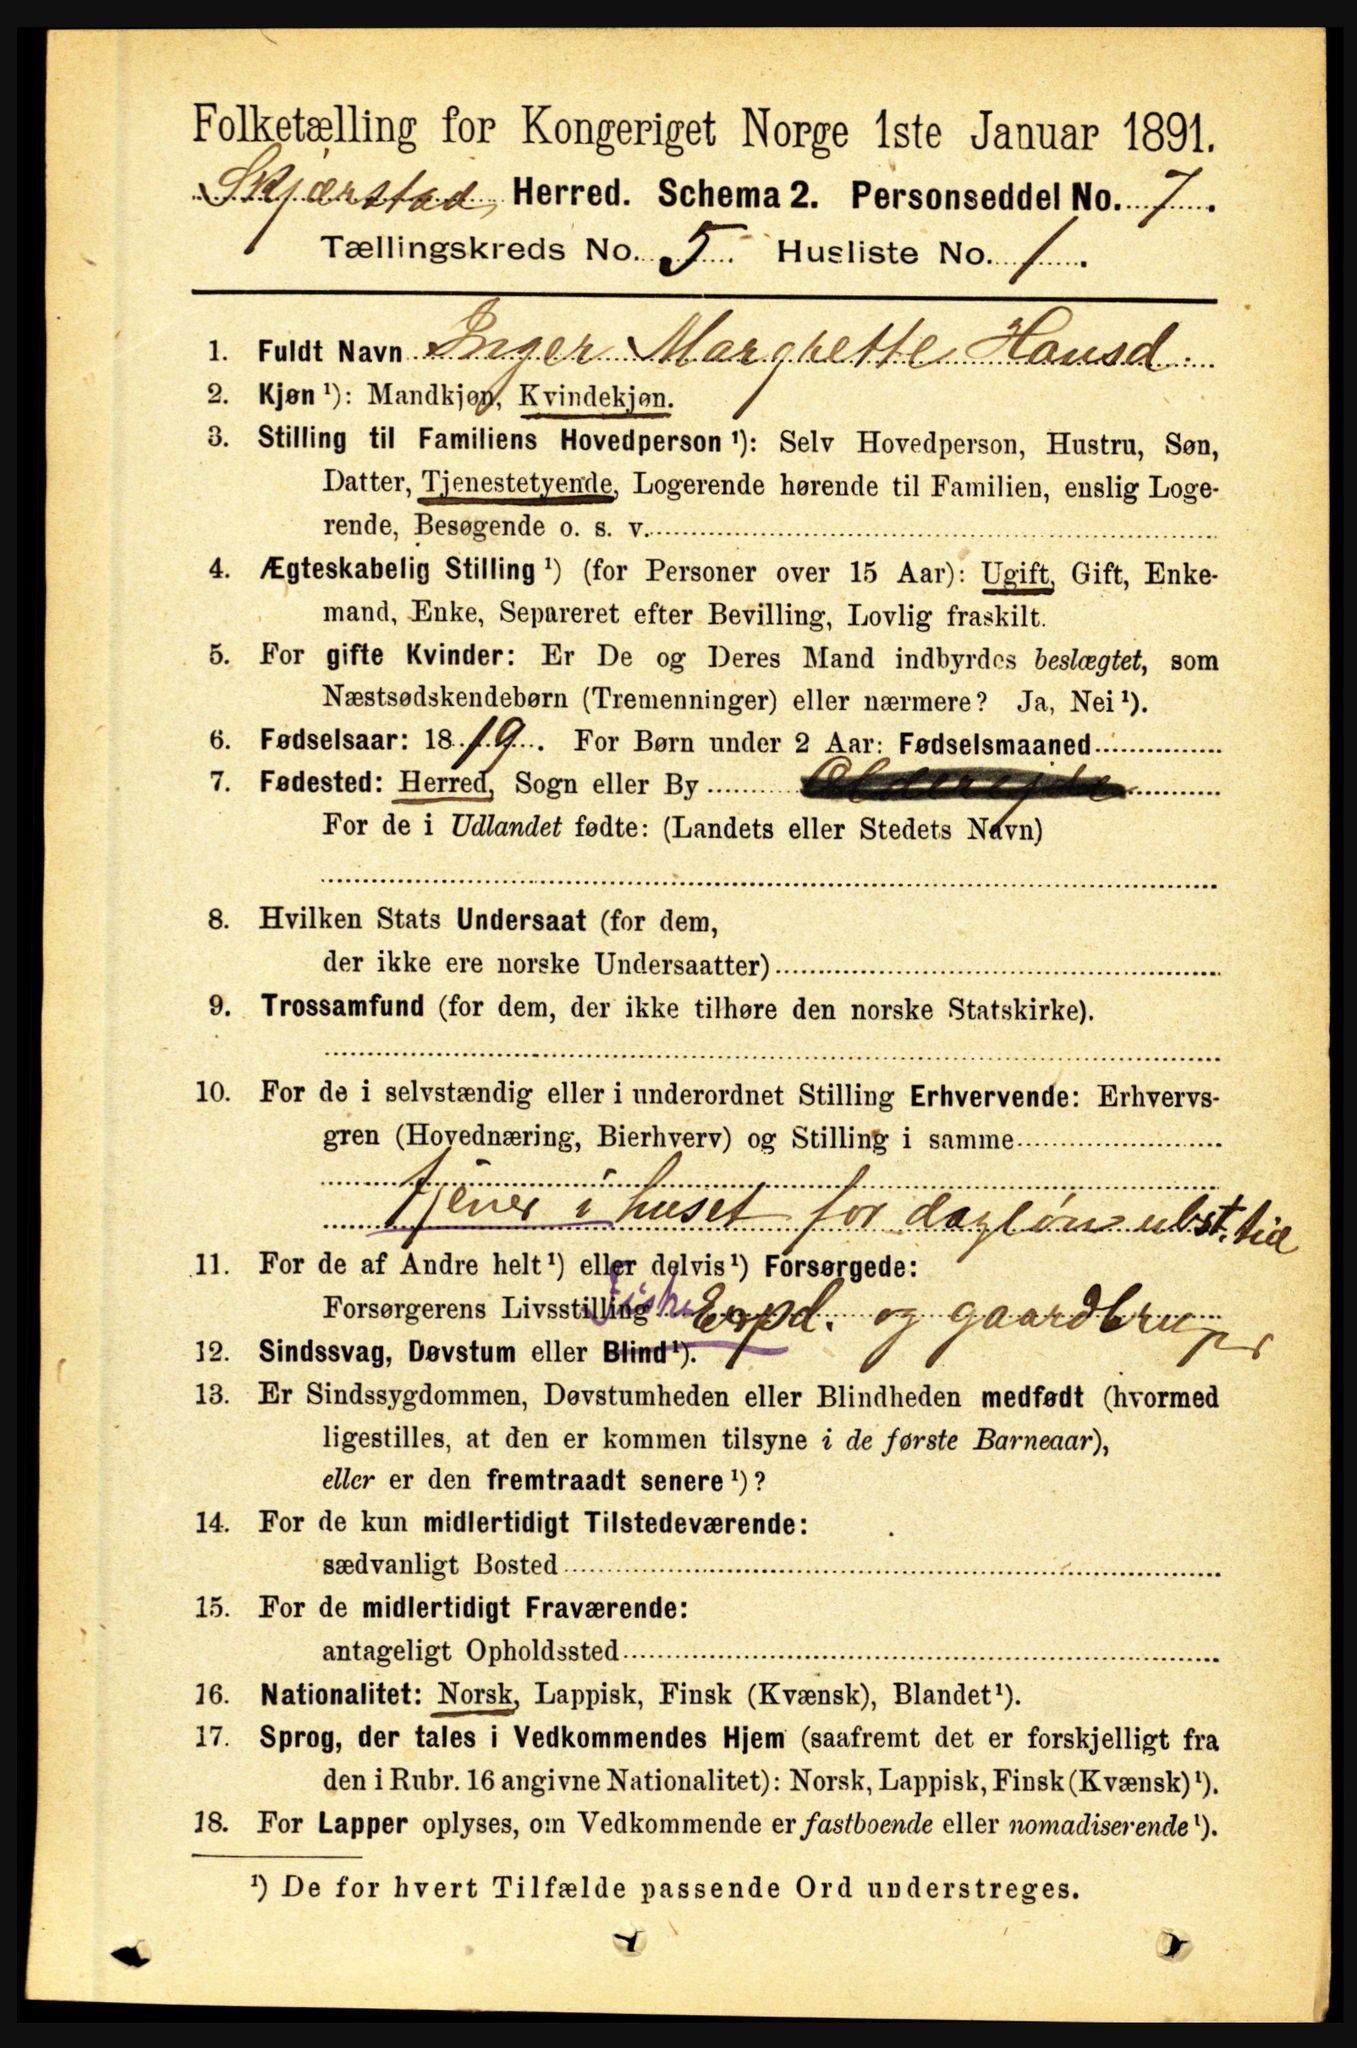 Folketælling for Kongeriget Norge 1ste Januar 1891.
Skjærstad Herred. Schema 2. Personseddel No. 7.
Tællingskreds No. 5. Husliste No. 1.
1. Fuldt Navn Inger Margrette Hansd.
2. Kjøn ¹): Mandkjøn, Kvindekjøn.
3. Stilling til Familiens Hovedperson ¹): Selv Hovedperson, Hustru, Søn,
Datter, Tjenestetyende, Logerende hørende til Familien, enslig Loge-
rende, Besøgende o. s. v.
4. Ægteskabelig Stilling ¹) (for Personer over 15 Aar): Ugift, Gift, Enke-
mand, Enke, Separeret efter Bevilling, Lovlig fraskilt.
5. For gifte Kvinder: Er De og Deres Mand indbyrdes beslægtet, som
Næstsødskendebørn (Tremenninger) eller nærmere? Ja, Nei ¹).
6. Fødselsaar: 1819. For Børn under 2 Aar: Fødselsmaaned
7. Fødested: Herred, Sogn eller By
For de i Udlandet fødte: (Landets eller Stedets Navn)
8. Hvilken Stats Undersaat (for dem,
der ikke ere norske Undersaatter)
9. Trossamfund (for dem, der ikke tilhøre den norske Statskirke).
10. For de i selvstændig eller i underordnet Stilling Erhvervende: Erhvervs-
gren (Hovednæring, Bierhverv) og Stilling i samme
tjener i huset for dagløn ubst. tid
11. For de af Andre helt ¹) eller delvis ¹) Forsørgede:
Forsørgerens Livsstilling Expd. og gaardbruger
12. Sindssvag, Døvstum eller Blind ¹).
13. Er Sindssygdommen, Døvstumheden eller Blindheden medfødt (hvormed
ligestilles, at den er kommen tilsyne i de første Barneaar),
eller er den fremtraadt senere ¹)?
14. For de kun midlertidigt Tilstedeværende:
sædvanligt Bosted
15. For de midlertidigt Fraværende:
antageligt Opholdssted
16. Nationalitet: Norsk, Lappisk, Finsk (Kvænsk), Blandet ¹).
17. Sprog, der tales i Vedkommendes Hjem (saafremt det er forskjelligt fra
den i Rubr. 16 angivne Nationalitet): Norsk, Lappisk, Finsk (Kvænsk) ¹).
18. For Lapper oplyses, om Vedkommende er fastboende eller nomadiserende ¹).
¹) De for hvert Tilfælde passende Ord understreges.